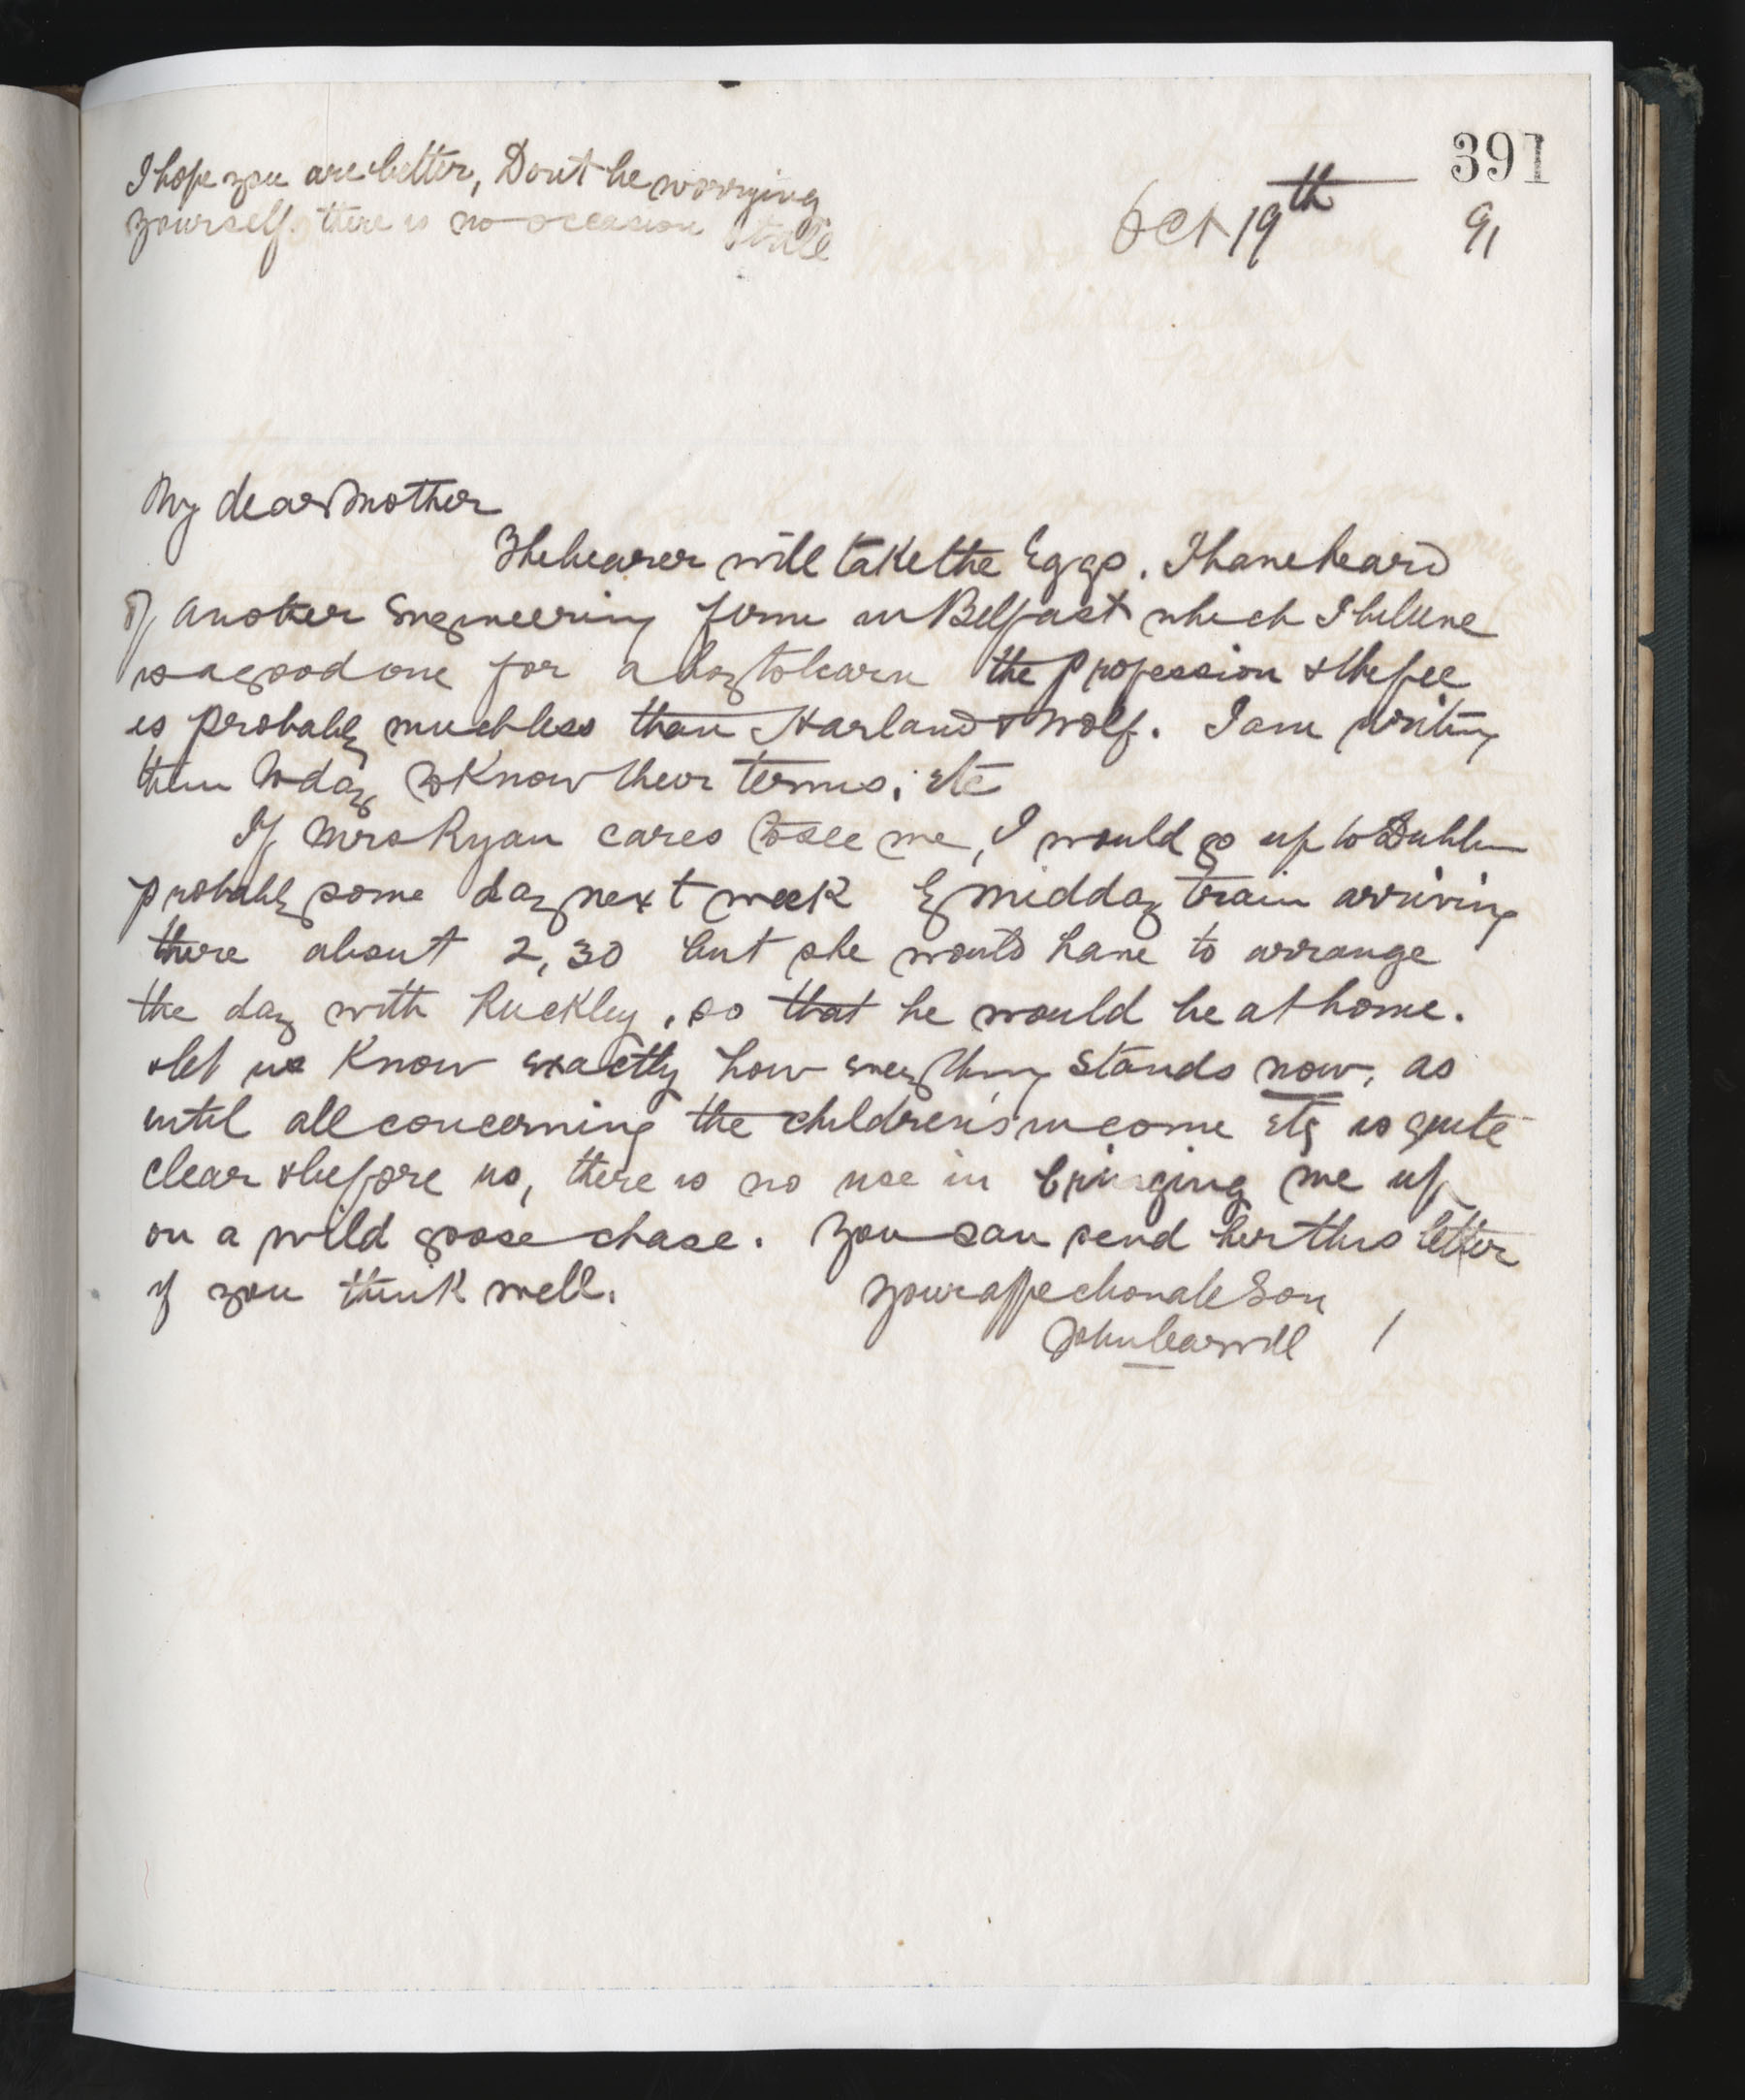 391
I hope you are better, Don't be worrying
yourself there is no occasion at all
Oct 19th 91
My dear Mother
The bearer will take the Eggs. I have heard
of another Engineering firm in Belfast which I believe
is a good one for a boy to learn the profession & the fee
is probably much less than Harland & Wolf. I am writing
them today to know their terms, etc
If Mrs Ryan cares to see me, I would go up to Dublin
probably some day next week by midday train arriving
there about 2,30 but she would have to arrange
the day with , so that he would be at home.
& let us know exactly how everything stands now, as
until all concerning the children's income etc is quite
clear & before us, there is no use in bringing me up
on a wild goose chase. You can send her this letter
if you think well.
Your affectionate Son
John